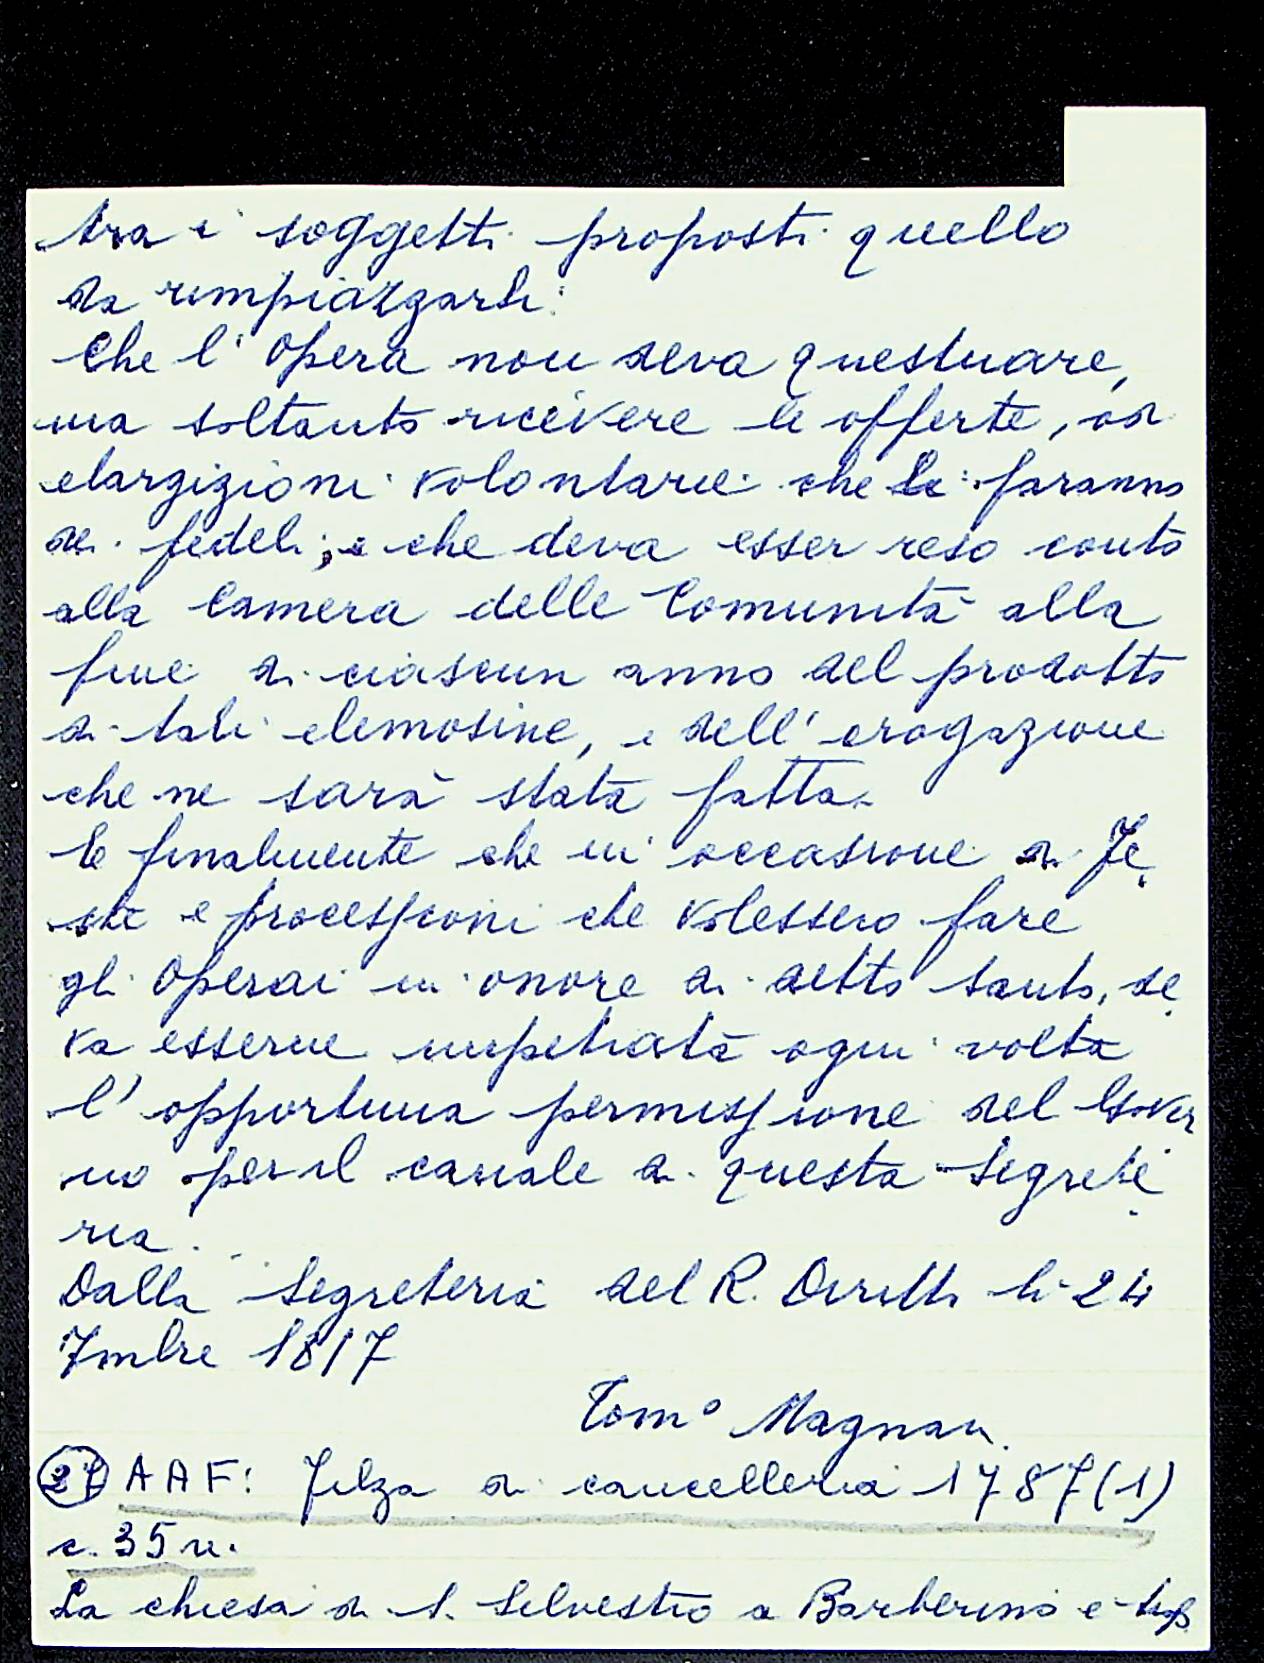 tra i soggetti proposti quello
da rimpiazzarsi:
Che l'Opera non deva questuare,
ma soltanto ricevere le offerte, od
elargizioni volontarie che le faranno
dei fedeli; e che deva esser reso conto
alla Camera delle Comunità alla
fine di ciascun anno del prodotto
di tali elemosine, e dell'erogazione
che ne sarà stata fatta.
E finalmente che in occasione di Fe
ste e processioni che volessero fare
gli Operai in onore di detto santo, de
va esserne impetrata ogni volta
l'opportuna permissione del Gover
no per il canale di questa Segrete
ria.
Dalla Segreteria del R. Diritto li 24
7mbre 1817
Tom° Magnani
27 AAF: Filza di cancelleria 1787 (1)
c. 35 n.
La chiesa di S. Silvestro a Barberino è